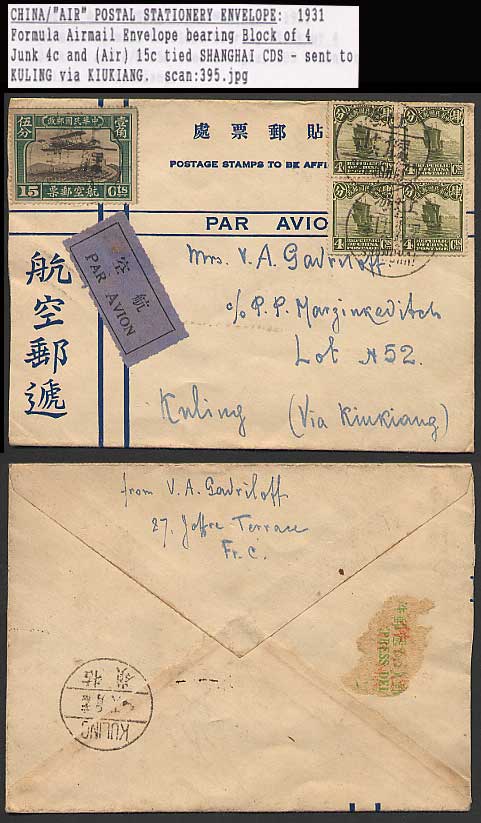 CHINA/"AIR" POSTAL STATIONERY ENVELOPE: 1931
Formula Airmail Envelope bearing Block of 4
Junk 4c and (Air) 15c tied SHANGHAI CDS - sent to
KULING via KIUKIANG. scan:395.jpg
政郵國民華中
伍分
壹角
票郵空航
15 Cts
處票郵貼
POSTAGE STAMPS TO BE AFFI
PAR AVION
4 Cts
4 Cts
4 Cts
4 Cts
航空郵遞
航空
PAR AVION
Mrs. V. A. Gavriloff
c/o P. P. Marzinkevitch
Lot N 52.
Kuling (Via Kiukiang)
from V. A. Gavriloff
27, Joffre Terrace
Fr. C.
PRESS DEL
KULING